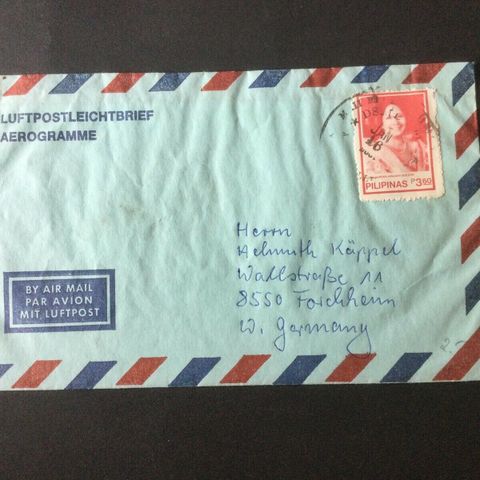 LUFTPOSTLEICHTBRIEF
AEROGRAMME
JAN
PILIPINAS P3.60
Herrn
Helmuth Käppel
Wallstraße 11
8550 Forchheim
W. Germany
BY AIR MAIL
PAR AVION
MIT LUFTPOST